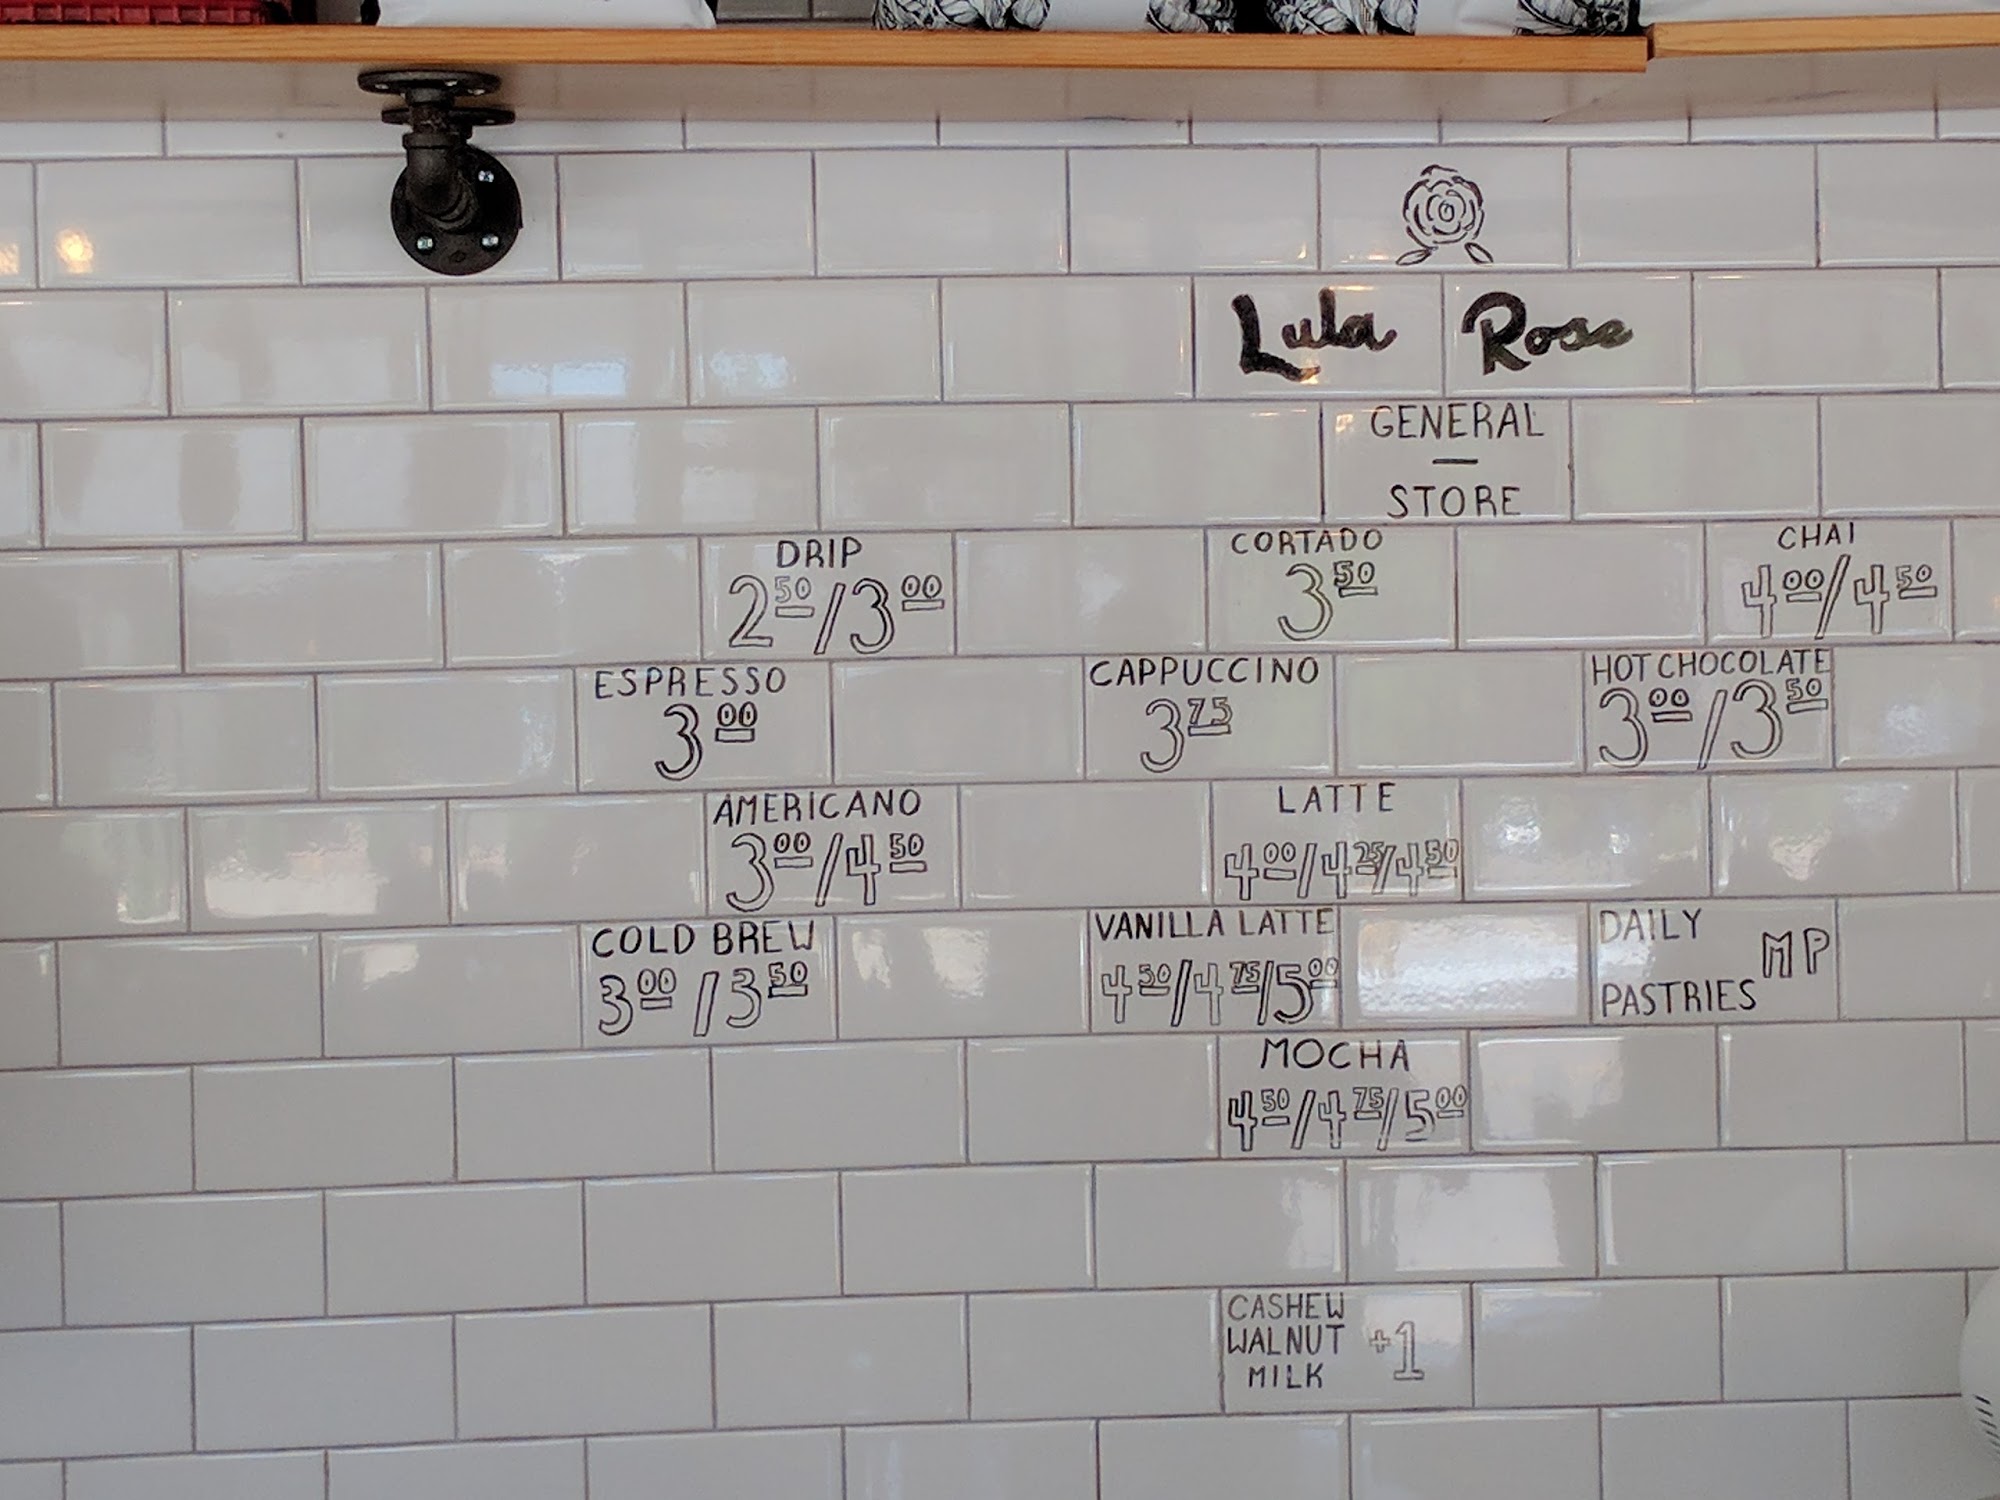 Lula Rose
GENERAL
—
STORE
DRIP
2.50/3.00
ESPRESSO
3.00
AMERICANO
3.00/4.50
COLD BREW
3.00/3.50
CORTADO
3.50
CAPPUCCINO
3.75
LATTE
4.00/4.25/4.50
VANILLA LATTE
4.50/4.75/5.00
MOCHA
4.50/4.75/5.00
CHAI
4.00/4.50
HOT CHOCOLATE
3.00/3.50
DAILY
PASTRIES MP
CASHEW
WALNUT +1
MILK